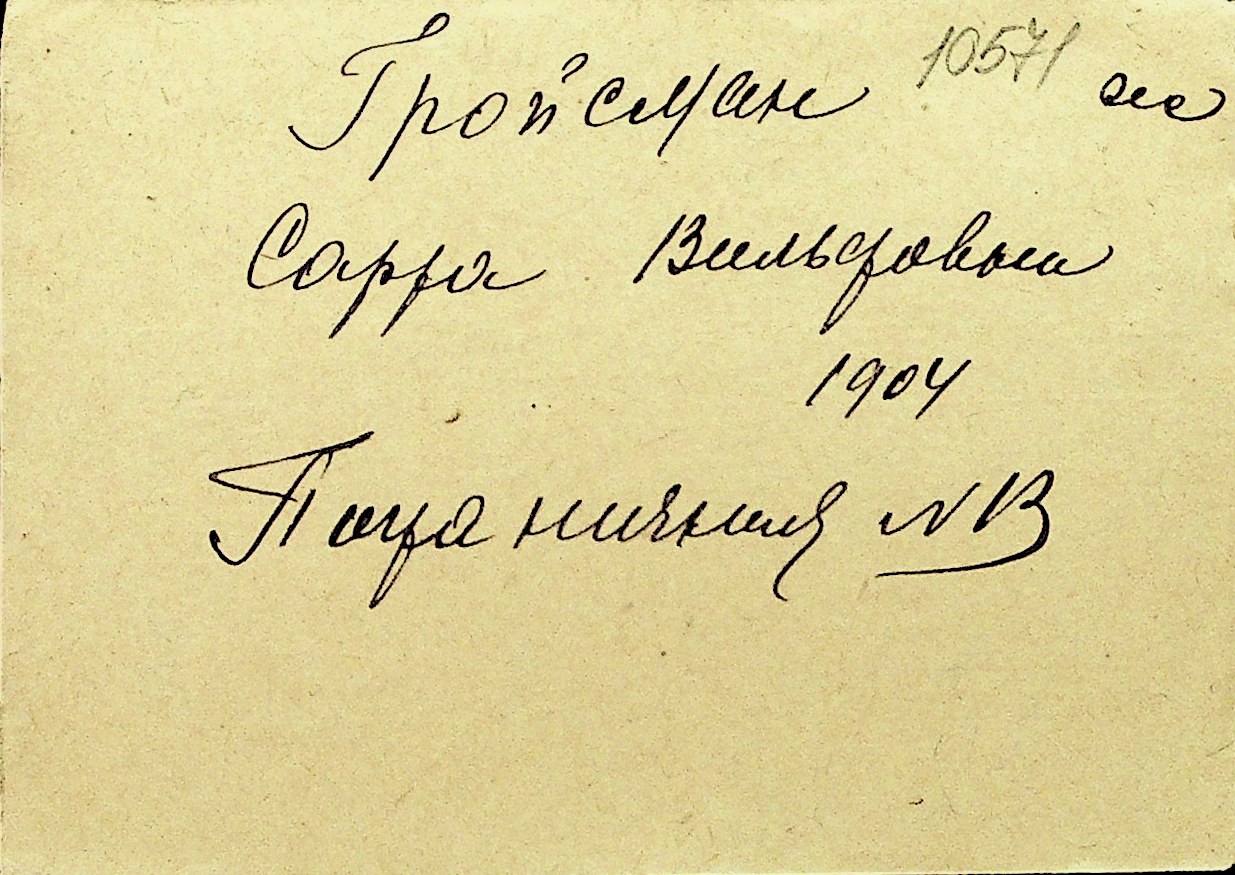 Гройсман 10571
Сарра Вильфовна
1904
Пограничная №13